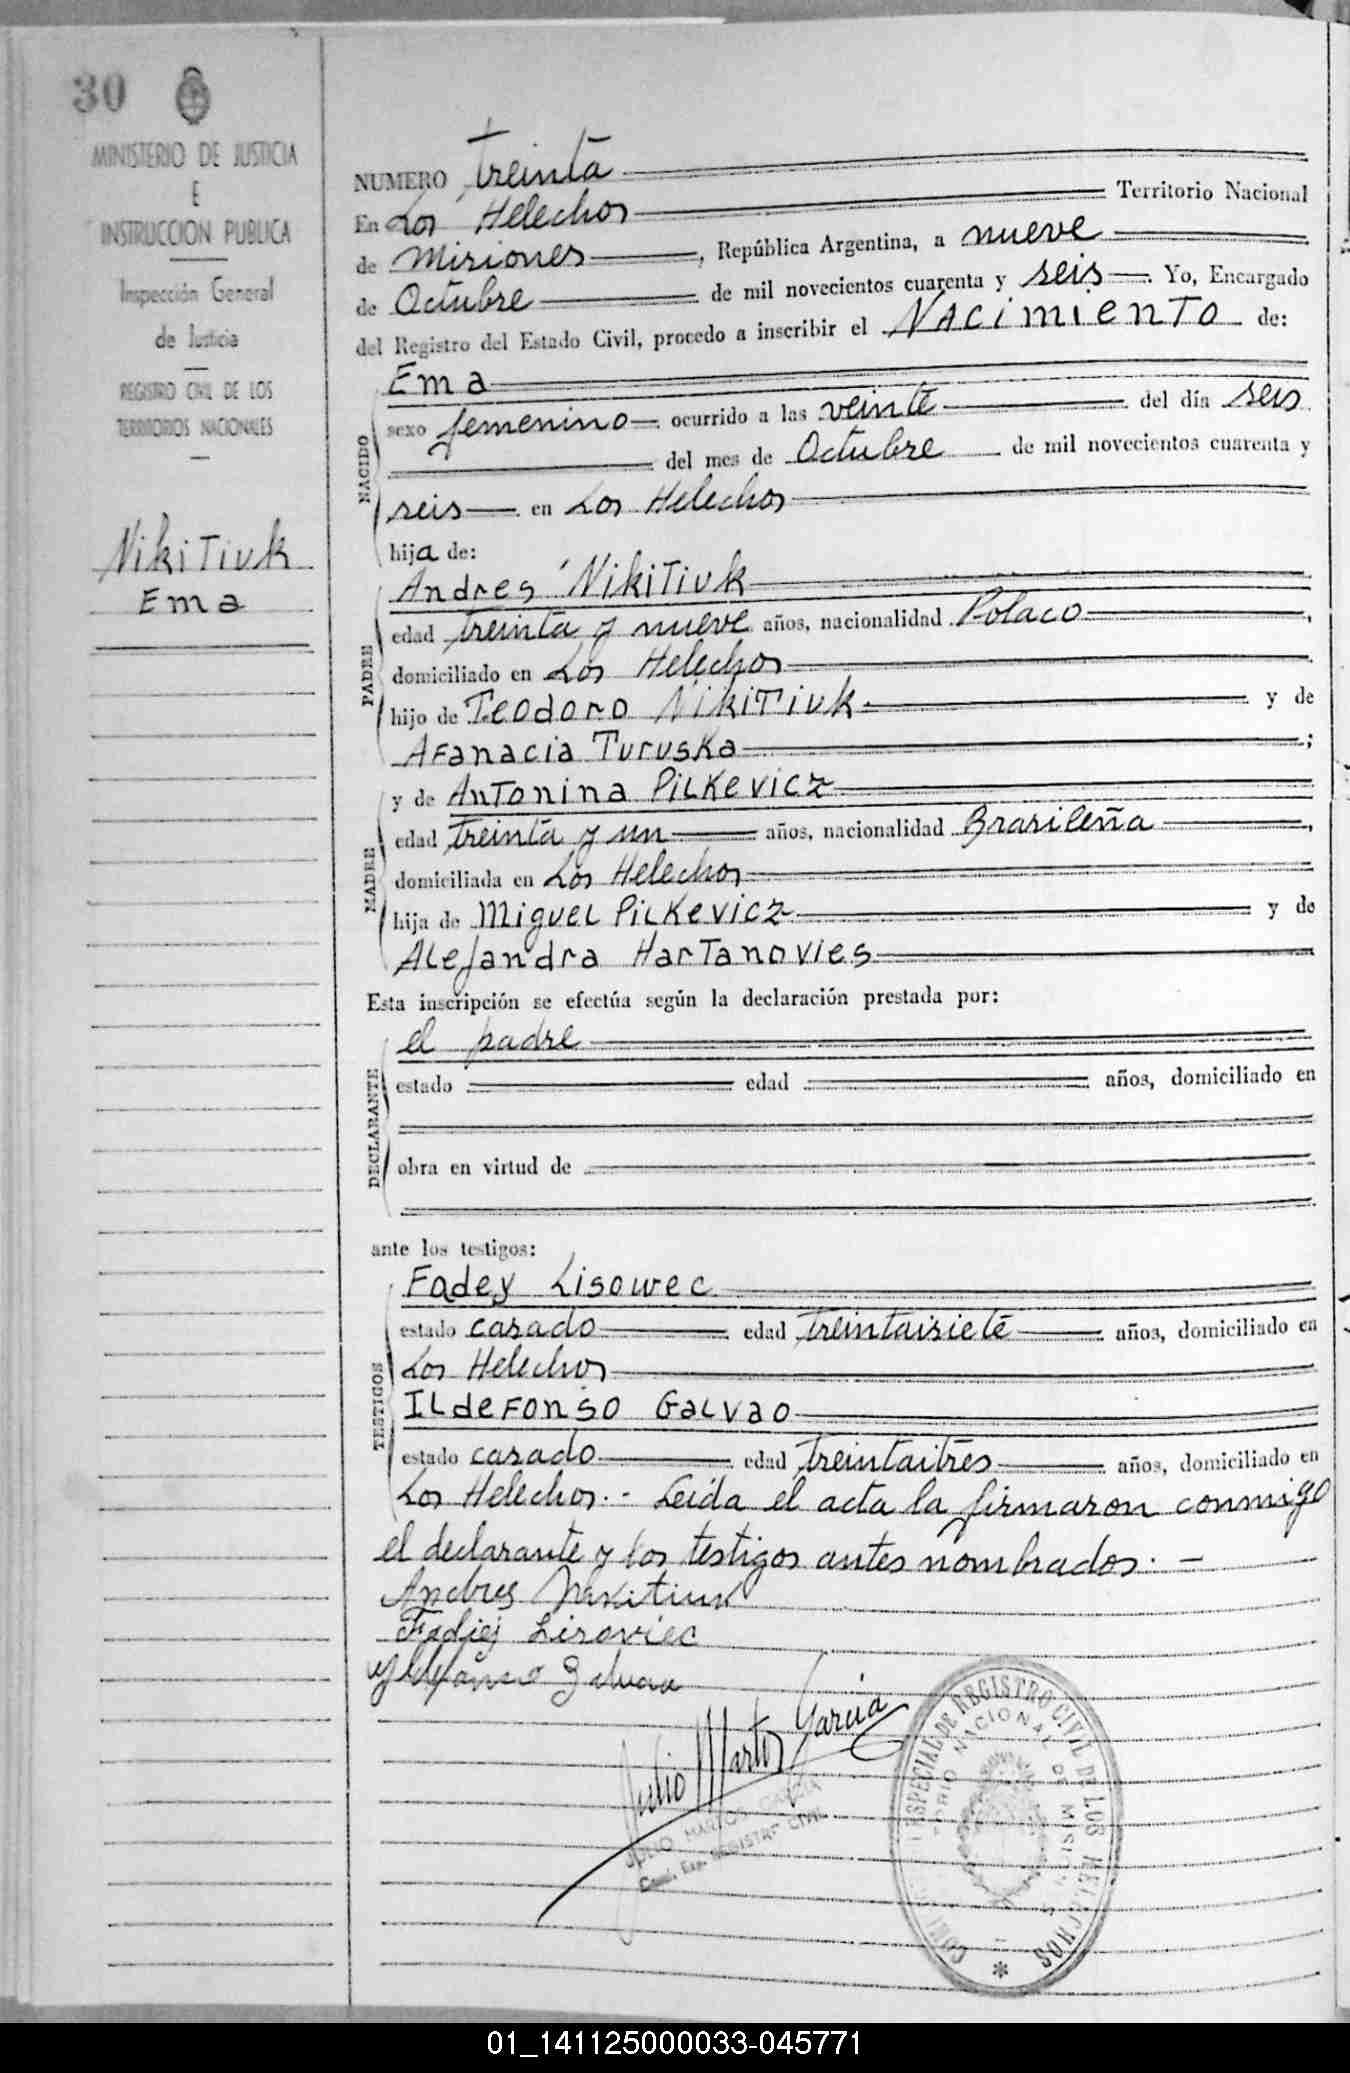 30
MINISTERIO DE JUSTICIA
E
INSTRUCCION PUBLICA
Inspección General
de Justicia
REGISTRO CIVIL DE LOS
TERRITORIOS NACIONALES
Nikitiuk
Ema
NUMERO treinta
En Los Helechos Territorio Nacional
de Misiones, República Argentina, a nueve
de Octubre de mil novecientos cuarenta y seis. Yo, Encargado
del Registro del Estado Civil, procedo a inscribir el Nacimiento de:
NACIDO
Ema
sexo femenino ocurrido a las veinte del día seis
del mes de Octubre de mil novecientos cuarenta y
seis en Los Helechos
hija de:
PADRE
Andres Nikitiuk
edad treinta y nueve años, nacionalidad Polaco,
domiciliado en Los Helechos
hijo de Teodoro Nikitiuk y de
Afanacia Turuska;
MADRE
y de Antonina Pilkevicz
edad treinta y un años, nacionalidad Brasileña,
domiciliada en Los Helechos
hija de Miguel Pilkevicz y de
Alejandra Hartanovies
Esta inscripción se efectúa según la declaración prestada por:
DECLARANTE
el padre
estado edad años, domiciliado en
obra en virtud de
ante los testigos:
TESTIGOS
Fadey Lisowec
estado casado edad treintaisiete años, domiciliado en
Los Helechos
Ildefonso Galvao
estado casado edad treintaitres años, domiciliado en
Los Helechos.- Leida el acta la firmaron conmigo
el declarante y los testigos antes nombrados.-
Andres Nikitiuk
Fadiej Lisoviec
Galvao
Julio Martos Garcia
JULIO MARTOS GARCIA
REGISTRO CIVIL
ESPECIAL DE REGISTRO CIVIL DE LOS HELECHOS
NACIONAL DE MISIONES
01_141125000033-045771